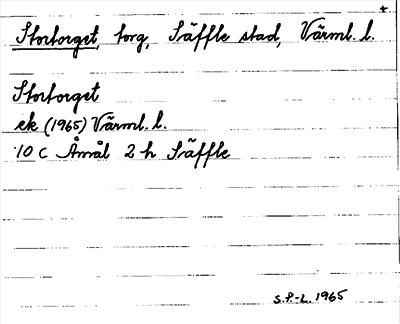 +
Stortorget, torg, Säffle stad, Värml. l.
Stortorget
ek (1965) Värml. l.
10 C Åmål 2 h Säffle
S.P.-L. 1965